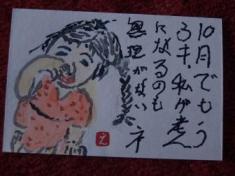 10月でもう
3才、私が老人
になるのも
無理がないネ